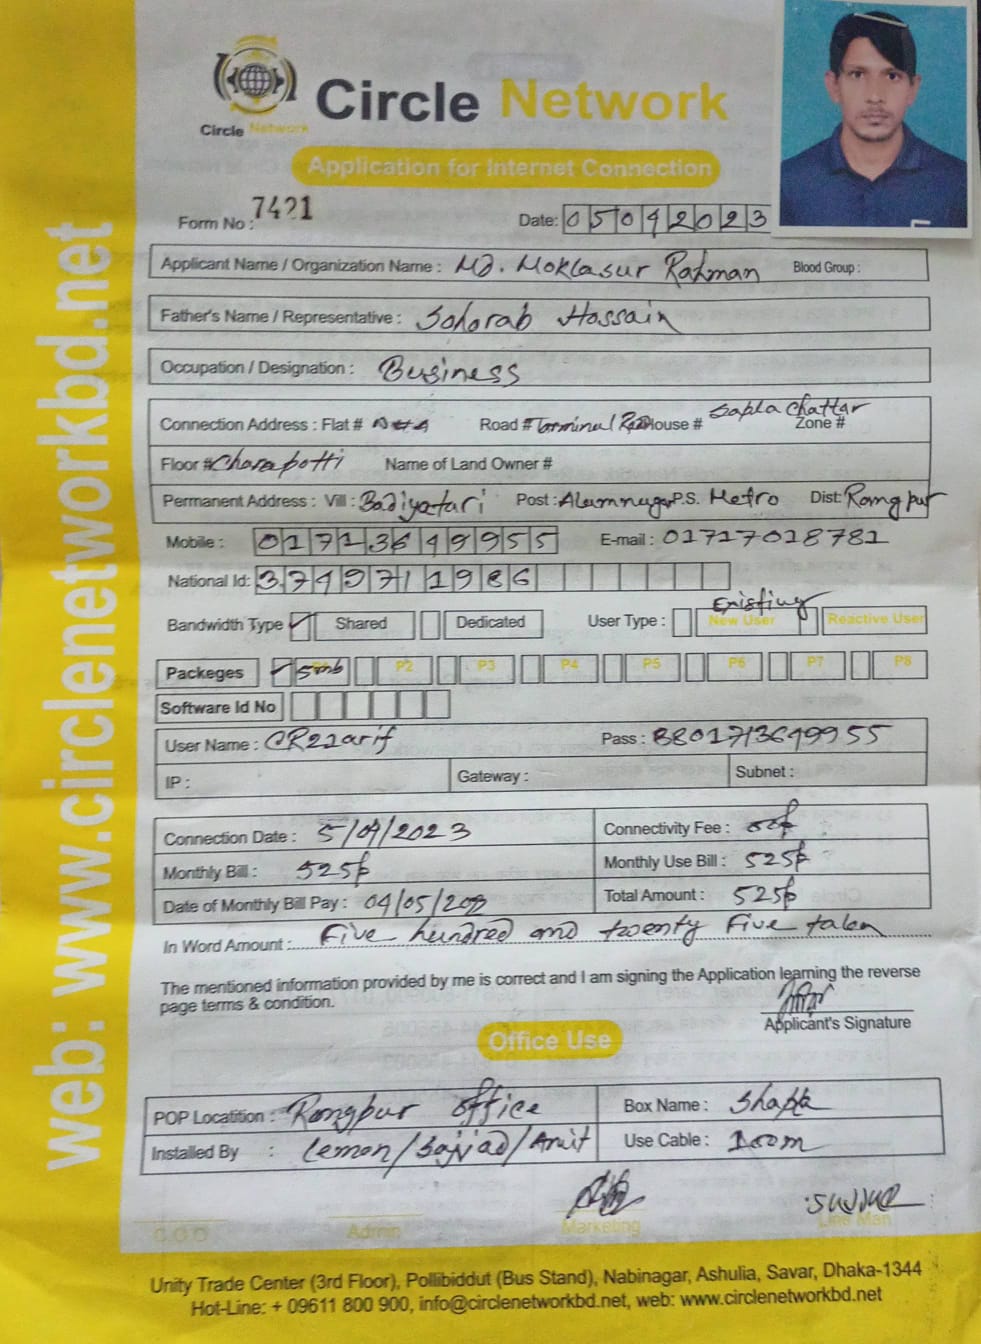 Circle Network
Circle Network
Application for Internet Connection
Form No : 7421
Date: 05042023
Applicant Name / Organization Name : Md. Moklasur Rahman Blood Group :
Father's Name / Representative : Sohorab Hossain
Occupation / Designation : Business
Connection Address : Flat # Road # Terminal Road House # Sapla Chattar Zone #
Floor # Charapotti Name of Land Owner #
Permanent Address : Vill : Badiyatari Post : Alamnagar P.S. Metro Dist: Rangpur
Mobile : 01713649955 E-mail : 01717018781
National Id: 3749711986
Bandwidth Type Shared Dedicated User Type : Existing New User Reactive User
Packeges 5mb P2 P3 P4 P5 P6 P7 P8
Software Id No
User Name : CR22arif Pass : 8801713649955
IP : Gateway : Subnet :
Connection Date : 5/04/2023 Connectivity Fee :
Monthly Bill : 525৳ Monthly Use Bill : 525৳
Date of Monthly Bill Pay : 04/05/202 Total Amount : 525৳
In Word Amount : Five hundred and twenty Five taka
The mentioned information provided by me is correct and I am signing the Application learning the reverse
page terms & condition.
Applicant's Signature
Office Use
POP Locatition : Rangpur office Box Name : Shapla
Installed By : Lemon/Sajjad/Amit Use Cable : 100m
C.O.O Admin Marketing Line Man
Unity Trade Center (3rd Floor), Pollibiddut (Bus Stand), Nabinagar, Ashulia, Savar, Dhaka-1344
Hot-Line: + 09611 800 900, info@circlenetworkbd.net, web: www.circlenetworkbd.net
web: www.circlenetworkbd.net